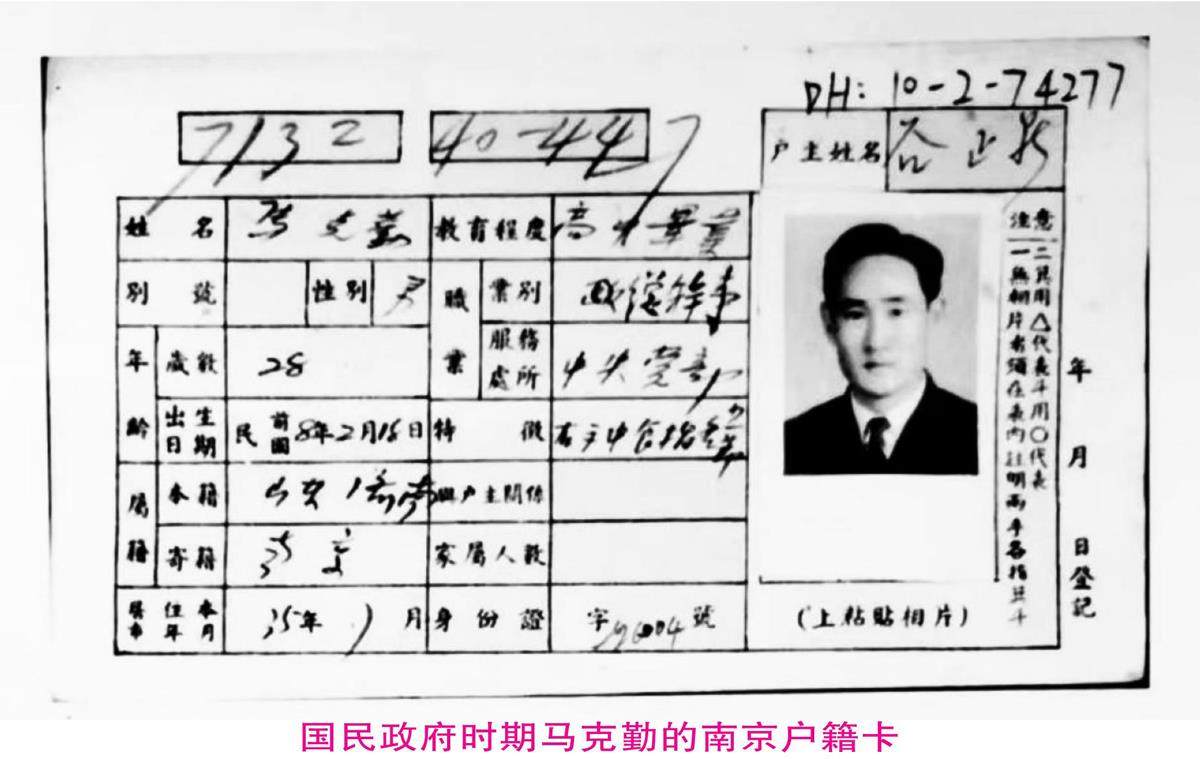 DH: 10-2-74277
7132 40-447
户主姓名 谷正
姓名 馬克勤 教育程度 高中畢業
別號 性別 男 職業 業別
年齡 歲數 28 服務處所 中央党部
出生日期 民前國8年2月16日 特徵 右手中食指
屬籍 本籍 與户主關係
寄籍 家屬人數
居住本市年月 35年 月 身份證 字 號
注意
一無相片者須在表內註明兩手各指箕斗
二箕用△代表斗用○代表
(上粘貼相片)
年 月 日登記
国民政府时期马克勤的南京户籍卡